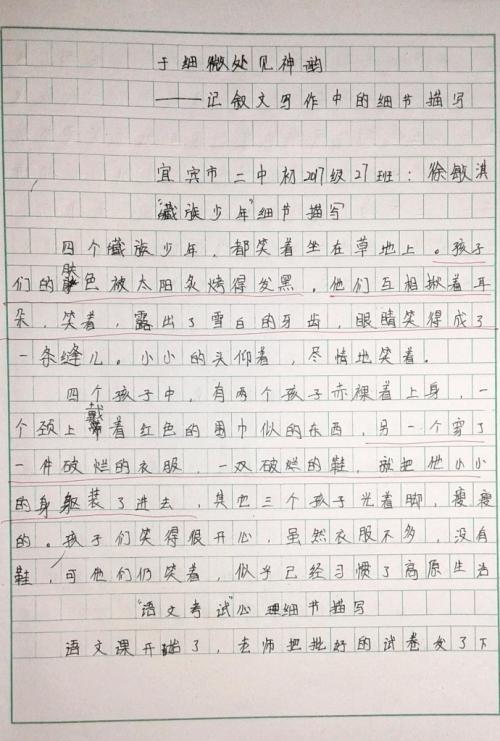 于细微处见神韵
——记叙文写作中的细节描写
宜宾市二中初2017级27班：徐敏淇
“藏族少年”细节描写
四个藏族少年，都笑着坐在草地上。孩子
们的肤色被太阳炙烤得发黑。他们互相揪着耳
朵，笑着，露出了雪白的牙齿，眼睛笑得成了
一条缝儿。小小的头仰着，尽情地笑着。
四个孩子中，有两个孩子赤裸着上身，一
个颈上戴着红色的围巾似的东西，另一个穿了
一件破烂的衣服，一双破烂的鞋，就把他小小
的身躯装了进去，其他三个孩子光着脚，瘦瘦
的。孩子们笑得很开心，虽然衣服不多，没有
鞋，可他们仍笑着，似乎已经习惯了高原生活
“语文考试”心理细节描写
语文课开始了，老师把批好的试卷发了下